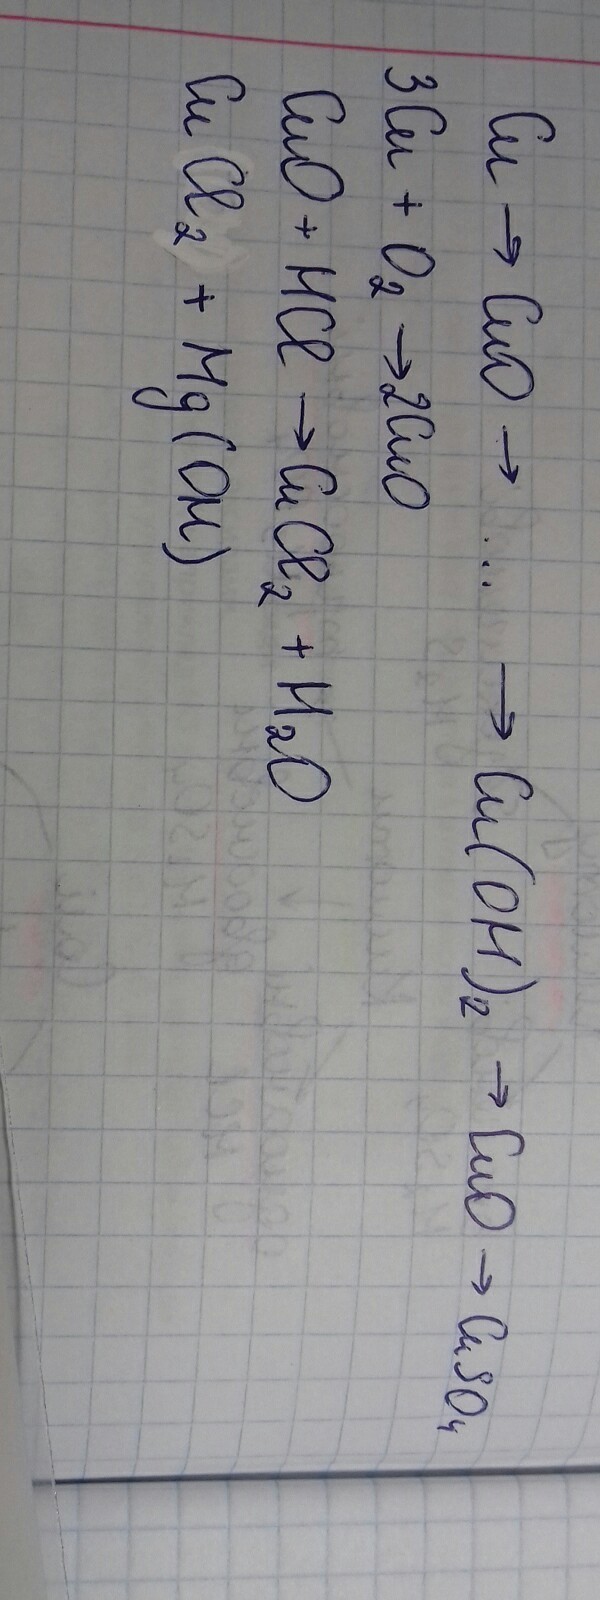 Cu → CuO → ... → Cu(OH)₂ → CuO → CuSO₄
3Cu + O₂ → 2CuO
CuO + HCl → CuCl₂ + H₂O
CuCl₂ + Mg(OH)